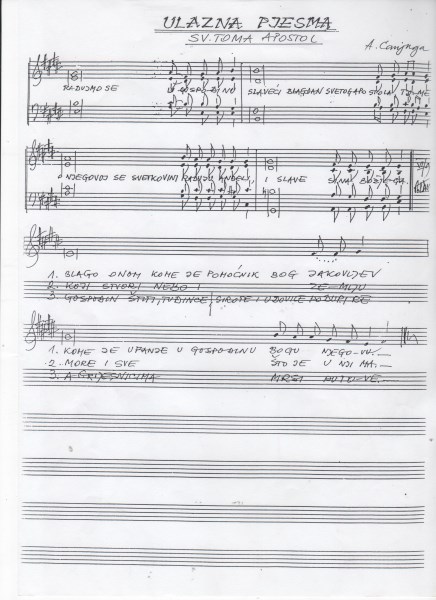 ULAZNA PJESMA
SV. TOMA APOSTOL
A.
RADUJMO SE U GOSPODINU SLAVEĆI BLAGDAN SVETOGA APOSTOLA TOME
O NJEGOVOJ SE SVETKOVINI RADUJU ANĐELI, I SLAVE SINA BOŽJEGA.
1. BLAGO ONOM KOME JE POMOĆNIK BOG JAKOVLJEV
2. KOJI STVORI NEBO I ZEMLJU
3. GOSPODIN ŠTITI TUĐINCE, SIROTE I UDOVICE PODUPIRE
1. KOME JE UFANJE U GOSPODINU BOGU NJEGOVU.
2. MORE I SVE ŠTO JE U NJIMA.
3. A GRJEŠNICIMA MRSI PUTKOVE.